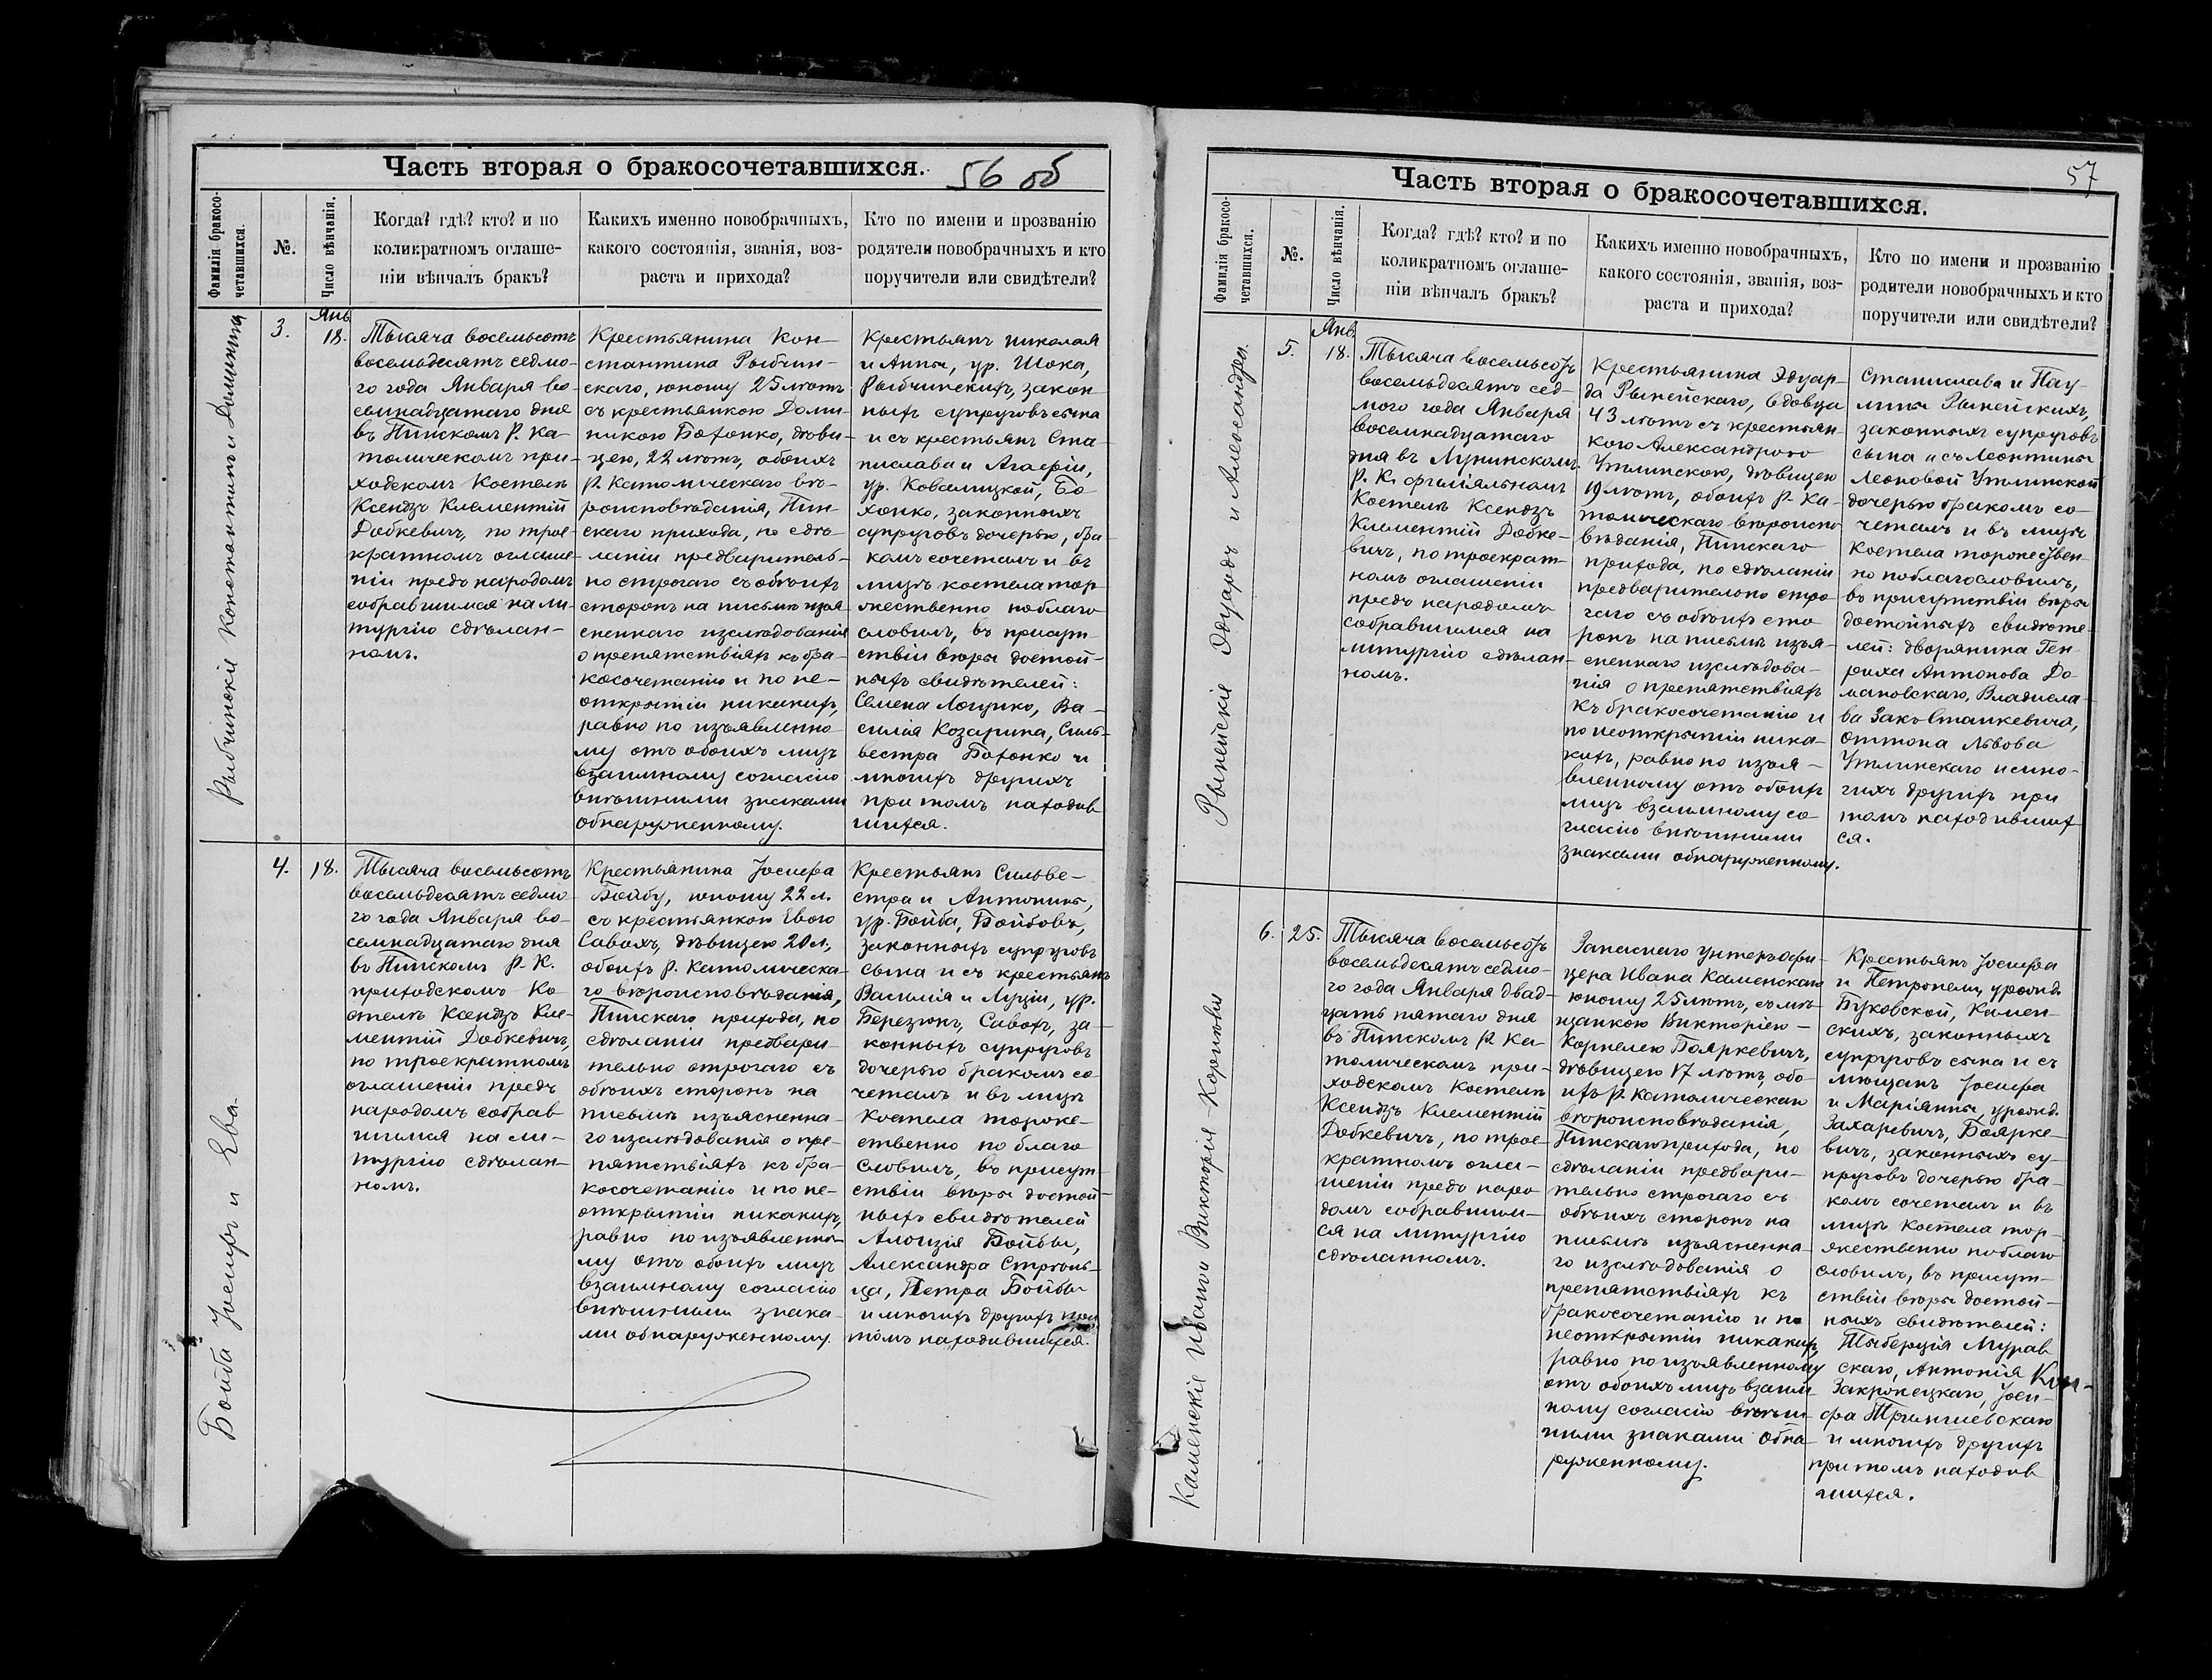 Часть вторая о бракосочетавшихся.
56 об
Фамилія бракосо-
четавшихся.
№.
Число вѣнчанія.
Когда? гдѣ? кто? и по
коликратномъ оглаше-
ніи вѣнчалъ бракъ?
Какихъ именно новобрачныхъ,
какого состоянія, званія, воз-
раста и прихода?
Кто по имени и прозванію
родители новобрачныхъ и кто
поручители или свидѣтели?
Рыбчинскіе Константинъ и Доминика
3.
Янв.
18.
Тысяча восемьсотъ
восемьдесятъ седмо-
го года Января во-
семнадцатаго дня
въ Пинскомъ Р. Ка-
толическомъ при-
ходскомъ Костелѣ
Ксендзъ Клементій
Добкевичъ, по трое-
кратномъ оглаше-
ніи предъ народомъ
собравшимся на ли-
тургію сдѣлан-
номъ.
Крестьянина Кон-
стантина Рыбчин-
скаго, юношу 25 лѣтъ
съ крестьянкою Доми-
никою Бохонко, дѣви-
цею, 22 лѣтъ, обоихъ
Р. Католическаго вѣ-
роисповѣданія, Пин-
скаго прихода, по сдѣ-
ланіи предваритель-
но строгаго съ обоихъ
сторонъ на письмѣ изъя-
сненнаго изслѣдованія
о препятствіяхъ къ бра-
косочетанію и по не-
открытіи никакихъ,
равно по изъявленно-
му отъ обоихъ лицъ
взаимному согласію
внѣшними знаками
обнаруженному.
Крестьянъ Николая
и Анны, ур. Шока,
Рыбчинскихъ, закон
ныхъ супруговъ сына
и съ крестьянъ Ста-
нислава и Агафіи,
ур. Ковалицкой, Бо
хонко, законныхъ
супруговъ дочерью, бра
комъ сочеталъ и въ
лицѣ костела тор
жественно поблаго
словилъ, въ присут-
ствіи вѣры достой-
ныхъ свидѣтелей:
Семена Лоцунко, Ва-
силія Козарина, Силь-
вестра Бохонко и
многихъ другихъ
при томъ находив
шихся.
Бойба Іосифъ и Ева.
4.
18.
Тысяча восемьсотъ
восемьдесятъ седмо
го года Января во-
семнадцатаго дня
въ Пинскомъ Р. К.
приходскомъ Ко-
стелѣ Ксендзъ Кле-
ментій Добкевичъ,
по троекратномъ
оглашеніи предъ
народомъ собрав
шимся на ли-
тургію сдѣлан-
номъ.
Крестьянина Іосифа
Бойбу, юношу 22 л.
съ крестьянкою Евою
Савохъ, дѣвицею 20 л.,
обоихъ Р. Католическа-
го вѣроисповѣданія,
Пинскаго прихода, по
сдѣланіи предвари-
тельно строгаго съ
обоихъ сторонъ на
письмѣ изъясненна-
го изслѣдованія о пре-
пятствіяхъ къ бра-
косочетанію и по не-
открытіи никакихъ,
равно по изъявленно-
му отъ обоихъ лицъ
взаимному согласію
внѣшними знака-
ми обнаруженному.
Крестьянъ Сильве-
стра и Антонины,
ур. Бойба, Бойбовъ,
законныхъ супруговъ
сына и съ крестьянъ
Василія и Луціи, ур.
Березюкъ, Савохъ, за-
конныхъ супруговъ
дочерью бракомъ со-
четалъ и въ лицѣ
костела торже-
ственно поблаго
словилъ, въ присут-
ствіи вѣры достой-
ныхъ свидѣтелей
Алоизія Бойбы,
Александра Стрѣль-
ца, Петра Бойбы
и многихъ другихъ при
томъ находившихся.
57
Часть вторая о бракосочетавшихся.
Фамилія бракосо-
четавшихся.
№.
Число вѣнчанія.
Когда? гдѣ? кто? и по
коликратномъ оглаше-
ніи вѣнчалъ бракъ?
Какихъ именно новобрачныхъ,
какого состоянія, званія, воз-
раста и прихода?
Кто по имени и прозванію
родители новобрачныхъ и кто
поручители или свидѣтели?
Рынейскіе Эдуардъ и Александра.
5.
Янв.
18.
Тысяча восемьсотъ
восемьдесятъ сед-
мого года Января
восемнадцатаго
дня въ Лунинскомъ
Р. К. филіяльномъ
Костелѣ Ксендзъ
Клементій Добке-
вичъ, по троекрат-
номъ оглашеніи
предъ народомъ
собравшимся на
литургію сдѣлан-
номъ.
Крестьянина Эдуар-
да Рынейскаго, вдовца
43 лѣтъ съ крестьян
кою Александрою
Утлинскою, дѣвицею
19 лѣтъ, обоихъ Р. Ка-
толическаго вѣроиспо
вѣданія, Пинскаго
прихода, по сдѣланіи
предварительно стро
гаго съ обоихъ сто-
ронъ на письмѣ изъя-
сненнаго изслѣдова-
нія о препятствіяхъ
къ бракосочетанію и
по неоткрытіи ника-
кихъ, равно по изъя-
вленному отъ обоихъ
лицъ взаимному со
гласію внѣшними
знаками обнаруженному.
Станислава и Пау-
лины Рынейскихъ,
законныхъ супруговъ
сына и съ Леонтины
Леоновой Утлинской
дочерью бракомъ со-
четалъ и въ лицѣ
Костела торжествен-
но поблагословилъ,
въ присутствіи вѣры
достойныхъ свидѣте-
лей: дворянина Ген-
риха Антонова До
мановскаго, Владисла-
ва Закъ-Станкевича,
Оттона Львова
Утлинскаго и мно-
гихъ другихъ при
томъ находивших
ся.
Каменскіе Иванъ и Викторія Корнелія
6.
25.
Тысяча восемьсотъ
восемьдесятъ седмо-
го года Января двад-
цать пятаго дня
въ Пинскомъ Р. Ка-
толическомъ при-
ходскомъ Костелѣ
Ксендзъ Клементій
Добкевичъ, по трое-
кратномъ огла-
шеніи предъ наро
домъ собравшим-
ся на литургію
сдѣланномъ.
Запаснаго унтеръ-офи-
цера Ивана Каменскаго
юношу 25 лѣтъ, съ мѣ-
щанкою Викторіею-
Корнелею Бояркевичъ,
дѣвицею 17 лѣтъ, обо
ихъ Р. Католическаго
вѣроисповѣданія,
Пинскаго прихода, по
сдѣланіи предвари-
тельно строгаго съ
обоихъ сторонъ на
письмѣ изъясненна-
го изслѣдованія о
препятствіяхъ къ
бракосочетанію и по
неоткрытіи никакихъ,
равно по изъявленному
отъ обоихъ лицъ взаим
ному согласію внѣш
ними знаками обна
руженному.
Крестьянъ Іосифа
и Петронели, урожд.
Буковской, Камен-
скихъ, законныхъ
супруговъ сына и съ
мѣщанъ Іосифа
и Маріянны, урожд.
Захаревичъ, Боярке-
вичъ, законныхъ су-
пруговъ дочерью бра-
комъ сочеталъ и въ
лицѣ Костела тор-
жественно поблаго
словилъ, въ присут-
ствіи вѣры достой-
ныхъ свидѣтелей:
Тыберція Мурав
скаго, Антонія
Закронецкаго, Іоси-
фа
и многихъ другихъ
при томъ находив
шихся.